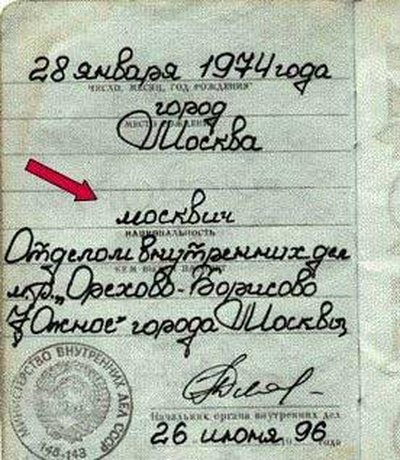 28 января 1974 года
ЧИСЛО, МЕСЯЦ, ГОД РОЖДЕНИЯ
город
МЕСТО РОЖДЕНИЯ
Москва
москвич
НАЦИОНАЛЬНОСТЬ
Отделом внутренних дел
КЕМ
м.р. „Орехово-Борисово
Южное“ города Москвы
МИНИСТЕРСТВО ВНУТРЕННИХ ДЕЛ СССР
148-143
Начальник органа внутренних дел
26 июня 96